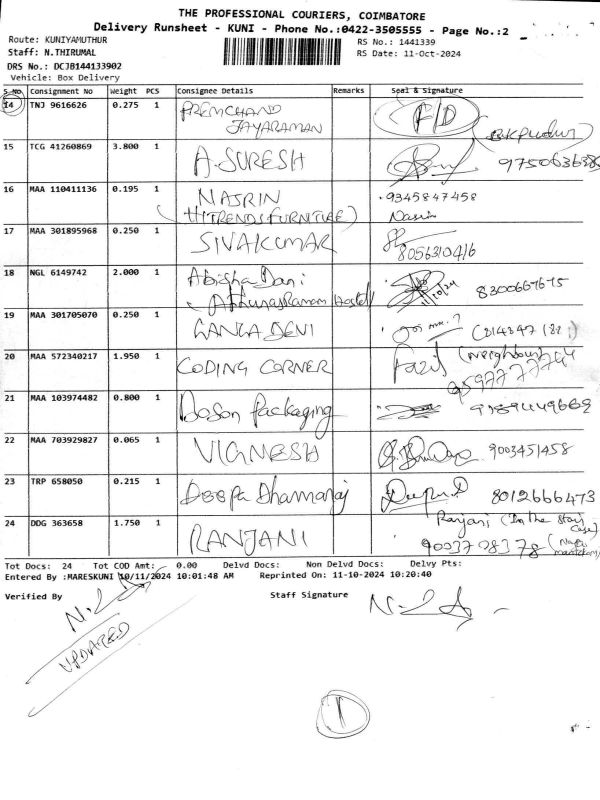 THE PROFESSIONAL COURIERS, COIMBATORE
Delivery Runsheet - KUNI - Phone No.:0422-3505555 - Page No.:2
Route: KUNIYAMUTHUR
RS No.: 1441339
Staff: N.THIRUMAL
RS Date: 11-Oct-2024
DRS No.: DCJB144133902
Vehicle: Box Delivery
S.No Consignment No Weight PCS Consignee Details Remarks Seal & Signature
14 TNJ 9616626 0.275 1 PREMCHAND JAYARAMAN F/D
15 TCG 41260869 3.800 1 A.SURESH
16 MAA 110411136 0.195 1 NASRIN 9345847458
(HITRENDS FURNITURE) Nasrin
17 MAA 301895968 0.250 1 SIVAKUMAR 8056310416
18 NGL 6149742 2.000 1 Abisha Dani 11/10/24 8300667675
Hostel
19 MAA 301705070 0.250 1 GANGA DEVI
20 MAA 572340217 1.950 1 CODING CORNER Fazil (Neighbour)
21 MAA 103974482 0.800 1 Doson Packaging
22 MAA 703929827 0.065 1 VIGNESH 9003451458
23 TRP 658050 0.215 1 Deepa Dharmaraj 8012666473
24 DDG 363658 1.750 1 RANJANI Ranjani (In the Stair case)
9003708378
Tot Docs: 24 Tot COD Amt: 0.00 Delvd Docs: Non Delvd Docs: Delvy Pts:
Entered By :MARESKUNI 10/11/2024 10:01:48 AM Reprinted On: 11-10-2024 10:20:40
Verified By Staff Signature
UPDATED
1